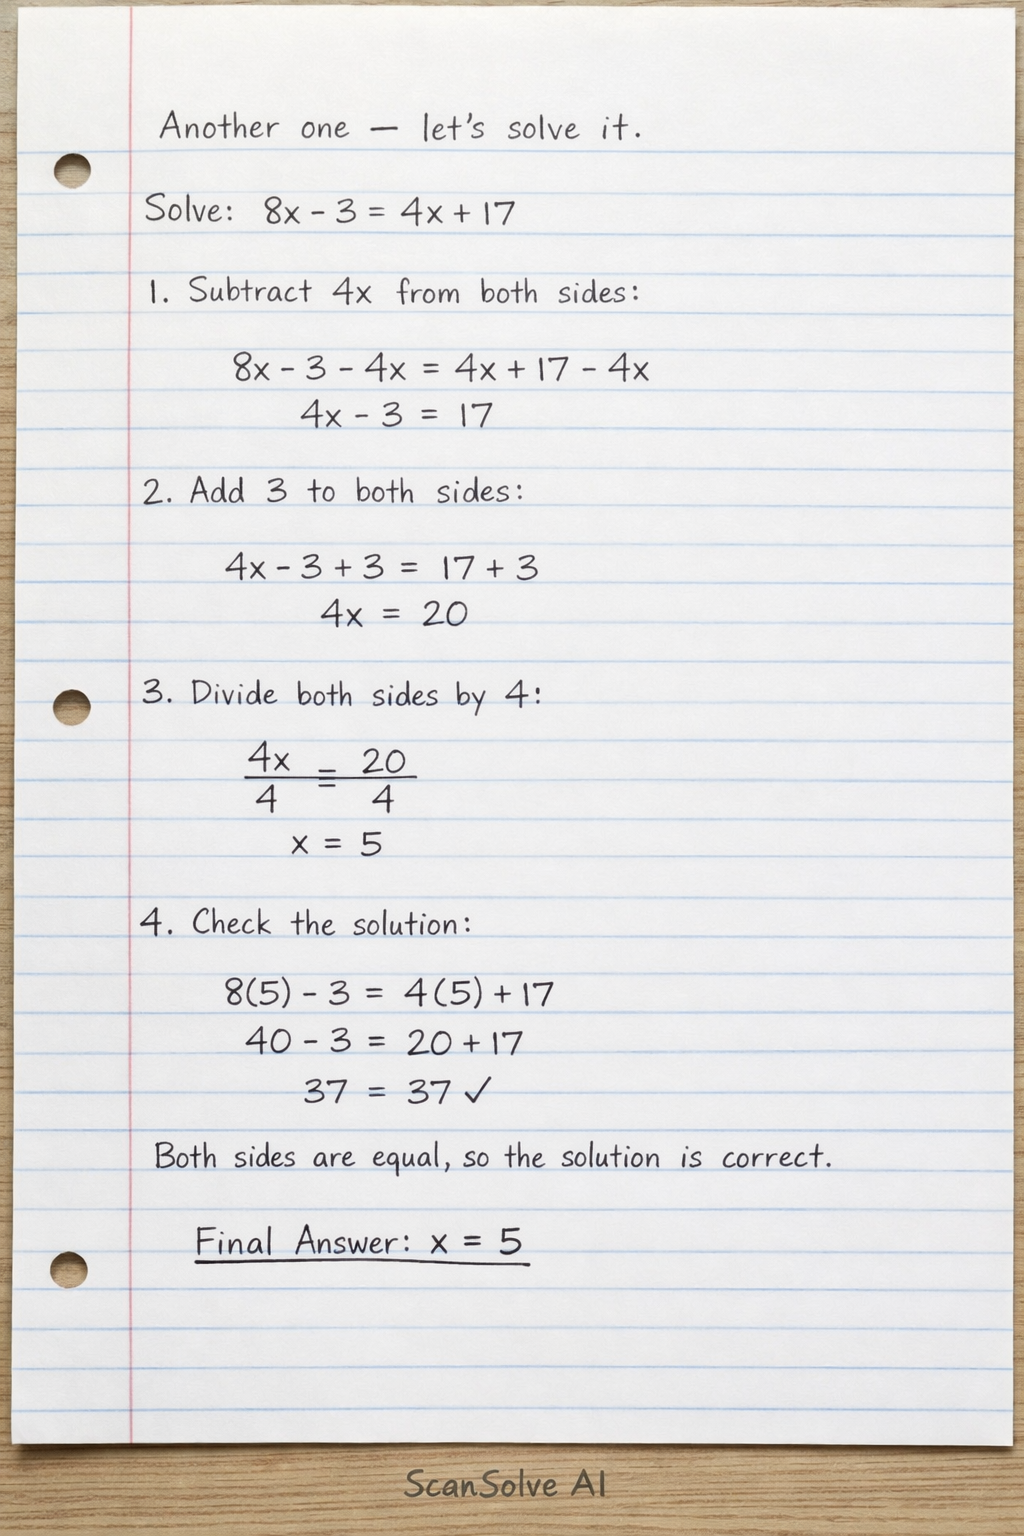 Another one — let's solve it.
Solve: 8x - 3 = 4x + 17
1. Subtract 4x from both sides:
8x - 3 - 4x = 4x + 17 - 4x
4x - 3 = 17
2. Add 3 to both sides:
4x - 3 + 3 = 17 + 3
4x = 20
3. Divide both sides by 4:
4x/4 = 20/4
x = 5
4. Check the solution:
8(5) - 3 = 4(5) + 17
40 - 3 = 20 + 17
37 = 37 ✓
Both sides are equal, so the solution is correct.
Final Answer: x = 5
ScanSolve AI